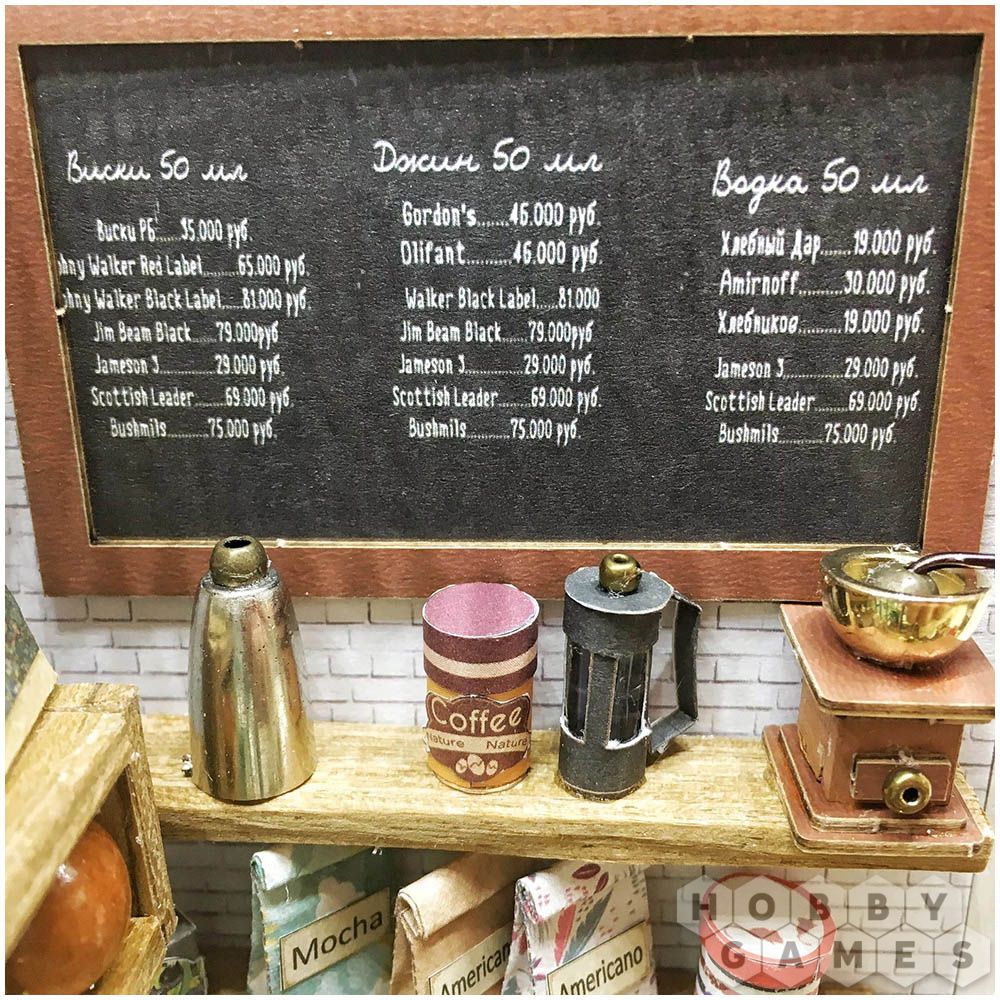 Виски 50 мл
Виски РБ......35.000 руб.
hny Walker Red Label.........65.000 руб.
ohny Walker Black Label.....81.000 руб.
Jim Beam Black......79.000руб
Jameson 3..............29.000 руб.
Scottish Leader........69.000 руб.
Bushmils..........75.000 руб.
Джин 50 мл
Gordon's.......46.000 руб.
Olifant..........46.000 руб.
Walker Black Label.....81.000
Jim Beam Black......79.000руб
Jameson 3..............29.000 руб.
Scottish Leader........69.000 руб.
Bushmils..........75.000 руб.
Водка 50 мл
Хлебный Дар.......19.000 руб.
Amirnoff..........30.000 руб.
Хлебников.........19.000 руб.
Jameson 3..............29.000 руб.
Scottish Leader........69.000 руб.
Bushmils..........75.000 руб.
Coffee
Nature Nature
Mocha
American
Americano
HOBBY
GAMES